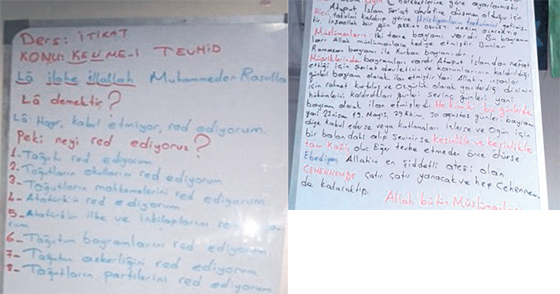 Ders: İTİKAT
KONU: KELİME-İ TEVHİD
Lâ ilahe illallah Muhammeden Rasulla
Lâ demektir?
Lâ Hayır, kabul etmiyor, red ediyorum.
Peki neyi red ediyoruz?
1- Tağutu red ediyorum
2- Tağutların okullarını red ediyorum
3- Tağutların mahkemelerini red ediyorum
4- Atatürk'ü red ediyorum
5- Atatürk'ün ilke ve inkılaplarını
rum
6- Tağutun bayramlarını red ediyorum
7- Tağutun askerliğini red ediyorum
8- Tağutların partilerini red ediyorum
hareketlerine göre ayarlamış
Atatürk İslam Şeriat devletine düşman olduğu için
kaldırıp yerine Hristiyanların
Müslümanların iki tane bayramı vardı. Bu bayram
ları Allah müslümanlara hediye etmiştir. Bunlar:
Ramazan bayramı ve Kurban bayramıdır.
bayramları vardı. Atatürk İslamdan nefret
ettiği için İslam devletini ve kanunlarını kaldırdığı
günleri bayram olarak ilan etmiştir. Yani Allah'ın insanlar
için rahmet kurtuluş ve özgürlük olarak gönderdiği dininin
hükümlerini kaldırdıkları günleri sevinç günleri yani
bayram olarak ilan etmişlerdi. Her kim bu günlerde
yani 23 nisan 19 Mayıs, 29 ekim, 30 ağustos günleri bayram
diye kabul ederse veya kutlamaları isterse ve O gün için
bir balonda alıp sevinirse kesinlikle ve kesinlikle
kafir olur. Eğer tevbe etmeden önce ölürse
Ebediyen Allah'ın en şiddetli ateşi olan
CEHENNEMDE çatır çatır yanacak ve hep Cehennem
de kalacaktır.
Allah bütün Müslümanla